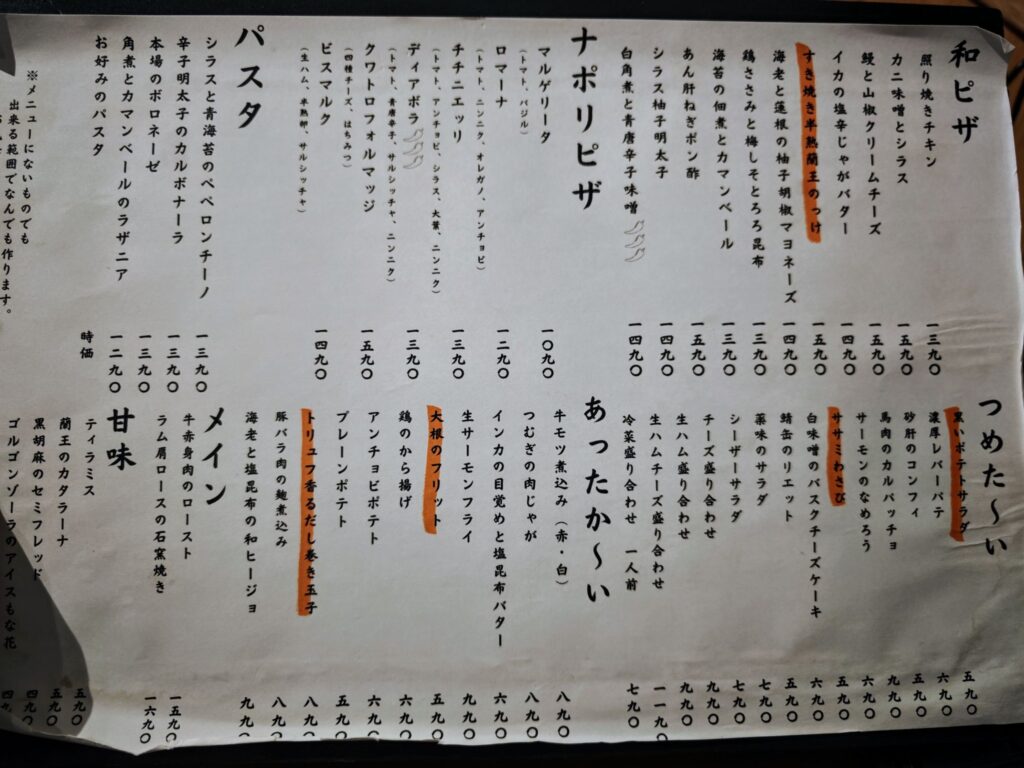 和ピザ
照り焼きチキン 一三九〇
カニ味噌とシラス 一五九〇
鰻と山椒クリームチーズ 一五九〇
イカの塩辛じゃがバター 一四九〇
すき焼き半熟蘭王のっけ 一五九〇
海老と蓮根の柚子胡椒マヨネーズ 一四九〇
鶏ささみと梅しそとろろ昆布 一三九〇
海苔の佃煮とカマンベール 一三九〇
あん肝ねぎポン酢 一五九〇
シラス柚子明太子 一四九〇
白角煮と青唐辛子味噌 一四九〇
ナポリピザ
マルゲリータ 一〇九〇
（トマト、バジル）
ロマーナ 一二九〇
（トマト、ニンニク、オレガノ、アンチョビ）
チチニエッリ 一三九〇
（トマト、アンチョビ、シラス、大葉、ニンニク）
ディアボラ 一三九〇
（トマト、青唐辛子、サルシッチャ、ニンニク）
クワトロフォルマッジ 一五九〇
（四種チーズ、はちみつ）
ビスマルク 一四九〇
（生ハム、半熟卵、サルシッチャ）
パスタ
シラスと青海苔のペペロンチーノ 一三九〇
辛子明太子のカルボナーラ 一三九〇
本場のボロネーゼ 一三九〇
角煮とカマンベールのラザニア 一二九〇
お好みのパスタ 時価
※メニューにないものでも
出来る範囲でなんでも作ります。
つめた〜い
黒いポテトサラダ 五九〇
濃厚レバーパテ 六九〇
砂肝のコンフィ 五九〇
馬肉のカルパッチョ 九九〇
サーモンのなめろう 六九〇
ササミわさび 五九〇
白味噌のバスクチーズケーキ 六九〇
鯖缶のリエット 五九〇
薬味のサラダ 七九〇
シーザーサラダ 七九〇
チーズ盛り合わせ 九九〇
生ハム盛り合わせ 九九〇
生ハムチーズ盛り合わせ 一一九〇
冷菜盛り合わせ 一人前 七九〇
あったか〜い
牛モツ煮込み（赤・白） 八九〇
つむぎの肉じゃが 八九〇
インカの目覚めと塩昆布バター 六九〇
生サーモンフライ 九九〇
大根のフリット 五九〇
鶏のから揚げ 六九〇
アンチョビポテト 六九〇
プレーンポテト 五九〇
トリュフ香るだし巻き玉子 八九〇
豚バラ肉の麹煮込み 八九〇
海老と塩昆布の和ヒージョ 九九〇
メイン
牛赤身肉のロースト 一五九〇
ラム肩ロースの石窯焼き 一六九〇
甘味
ティラミス 五九〇
蘭王のカタラーナ 五九〇
黒胡麻のセミフレッド 四九〇
ゴルゴンゾーラのアイスもな花 四九